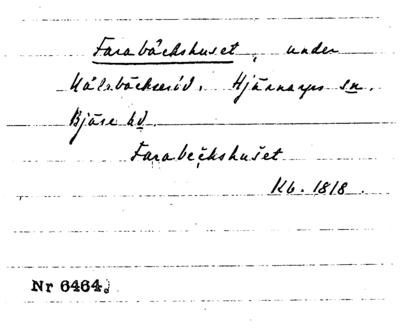 Farabäckshuset, under
Källebäckseröd, Hjärnarps sn.
Bjäre hd
Farabeckshuset
Kb. 1818.
Nr 6464.